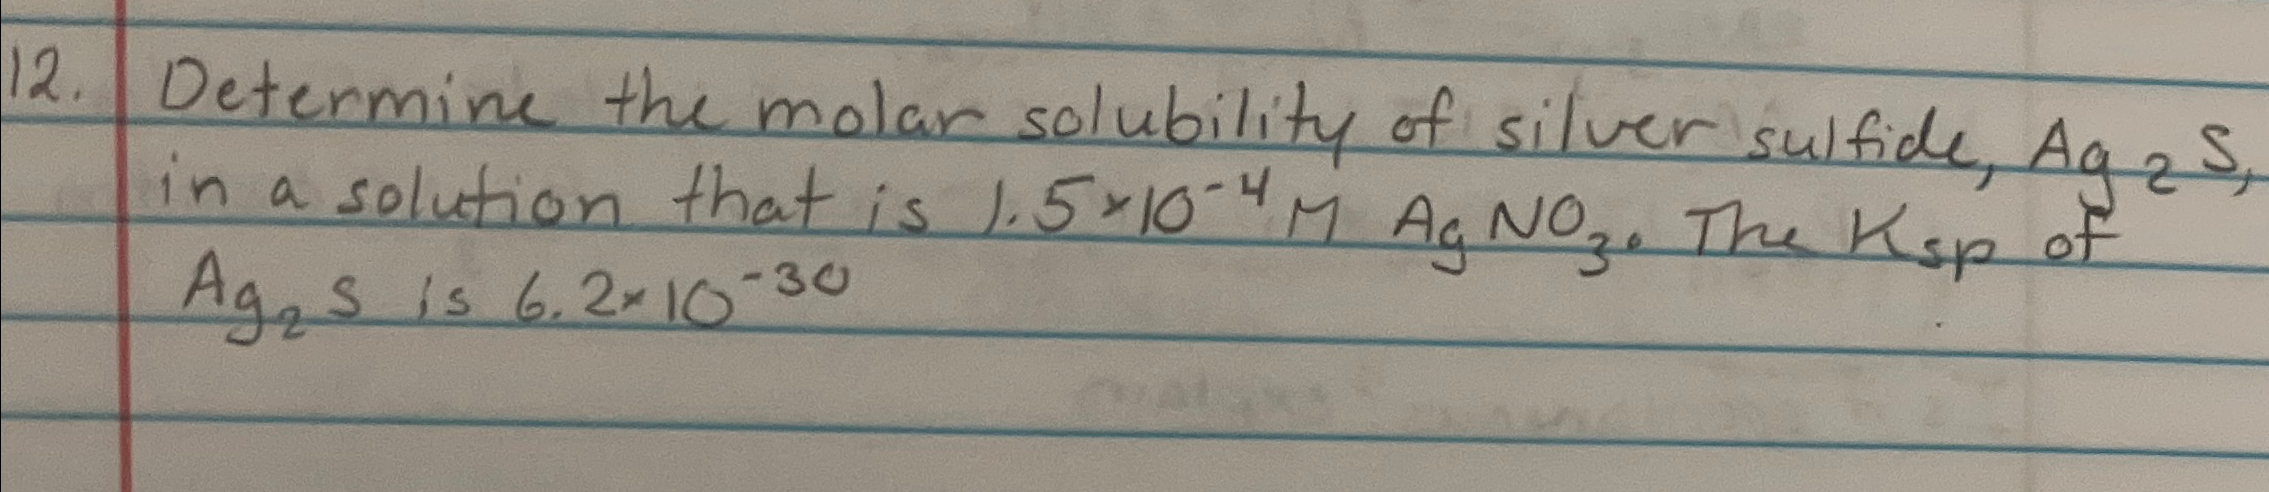 12. Determine the molar solubility of silver sulfide, Ag₂S,
in a solution that is 1.5×10⁻⁴ M AgNO₃. The Ksp of
Ag₂S is 6.2×10⁻³⁰